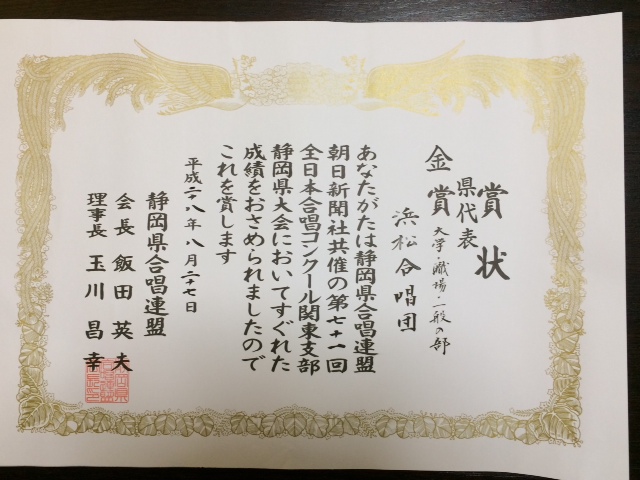 賞状
県代表
金賞
大学・職場・一般の部
浜松合唱団
あなたがたは静岡県合唱連盟
朝日新聞社共催の第七十一回
全日本合唱コンクール関東支部
静岡県大会においてすぐれた
成績をおさめられましたので
これを賞します
平成二十八年八月二十七日
静岡県合唱連盟
会長 飯田英夫
理事長 玉川昌幸